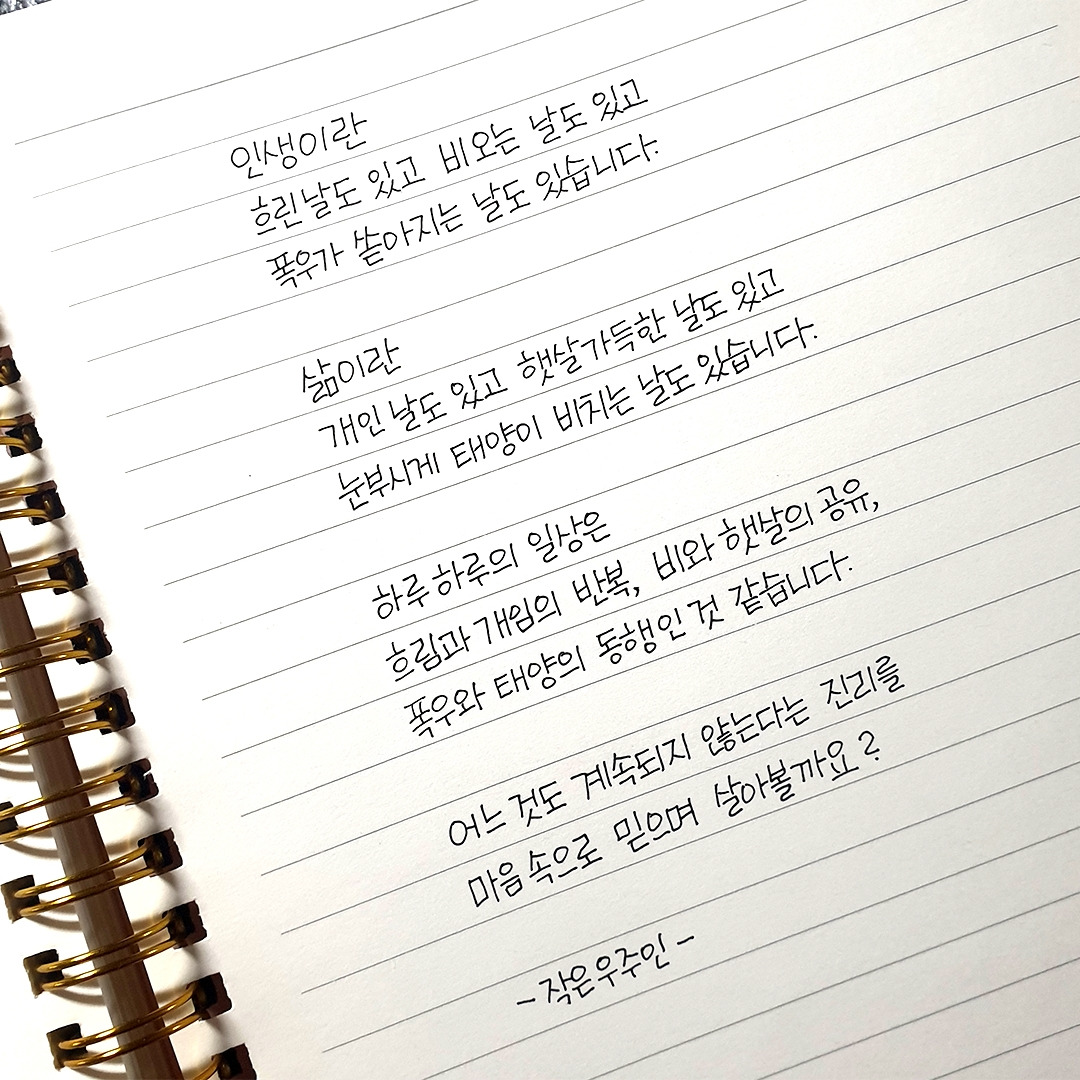 인생이란
흐린 날도 있고 비오는 날도 있고
폭우가 쏟아지는 날도 있습니다.
삶이란
개인 날도 있고 햇살가득한 날도 있고
눈부시게 태양이 비치는 날도 있습니다.
하루하루의 일상은
흐림과 개임의 반복, 비와 햇살의 공유,
폭우와 태양의 동행인 것 같습니다.
어느 것도 계속되지 않는다는 진리를
마음 속으로 믿으며 살아볼까요?
- 작은우주인 -